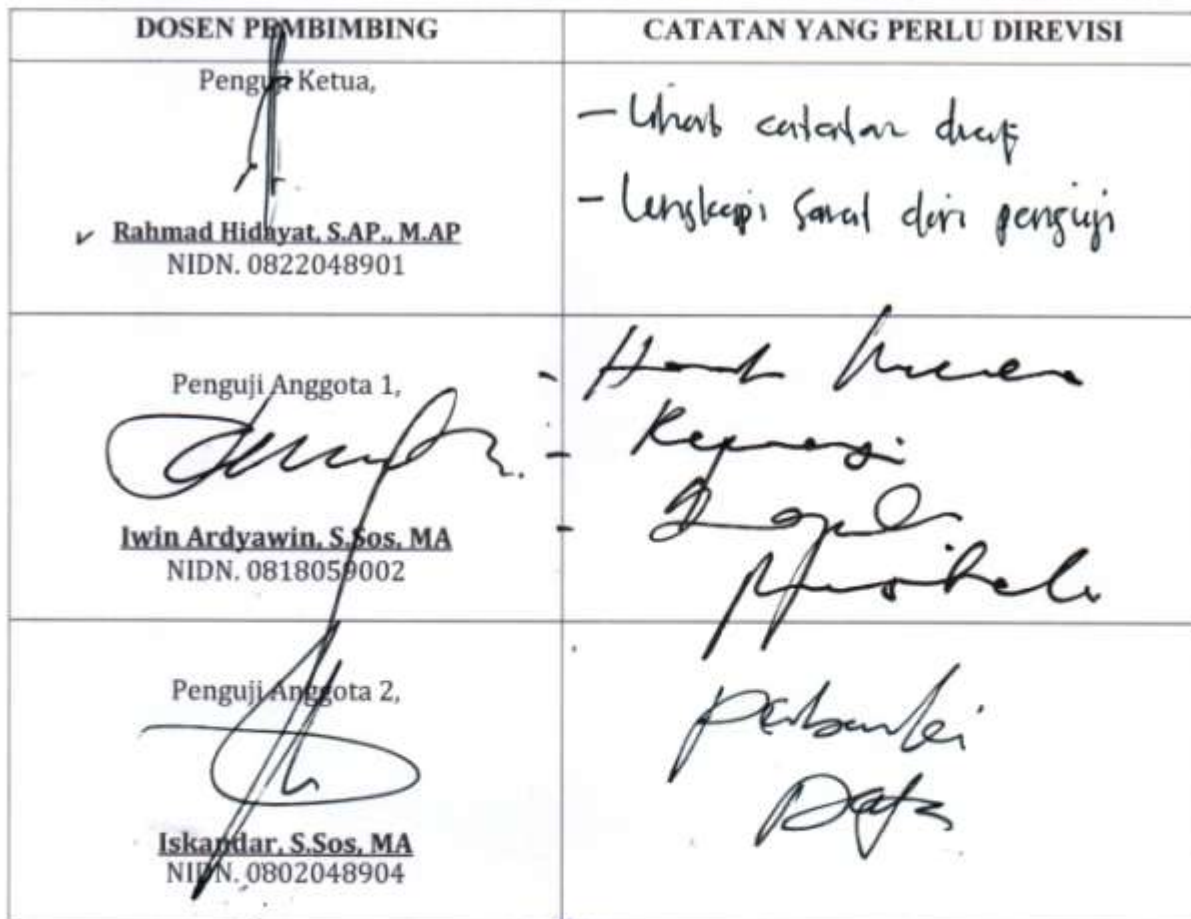 DOSEN PEMBIMBING
CATATAN YANG PERLU DIREVISI
Penguji Ketua,
Rahmad Hidayat, S.AP., M.AP
NIDN. 0822048901
- Lihat catatan draf
- Lengkapi saral dari penguji
Penguji Anggota 1,
Iwin Ardyawin, S.Sos, MA
NIDN. 0818059002
Penguji Anggota 2,
Iskandar, S.Sos, MA
NIDN. 0802048904
perbaiki
Data